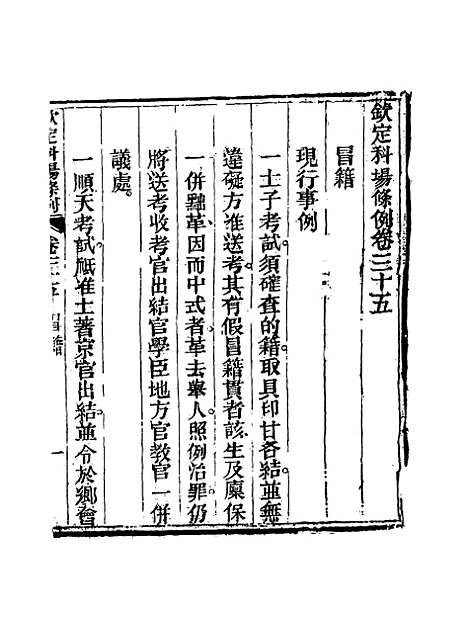 欽定科場條例卷三十五
冒籍
現行事例
一士子考試須確查的籍取具印甘各結並無
違礙方准送考其有假冒籍貫者該生及廩保
一併黜革因而中式者革去舉人照例治罪仍
將送考收考官出結官學臣地方官教官一併
議處
一順天考試祗准土著京官出結並令於鄉會
欽定科場條例 卷三十五 冒籍 一